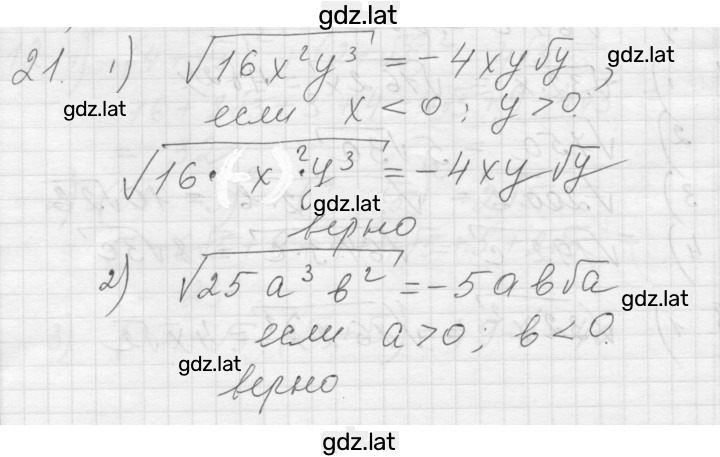 gdz.lat
21. 1) √16x²y³ = -4xy√y,
gdz.lat
gdz.lat
если x < 0; y > 0.
√16·(-x)²·y³ = -4xy√y
gdz.lat
верно
2) √25a³b² = -5ab√a
gdz.lat
если a > 0; b < 0.
gdz.lat
верно
gdz.lat